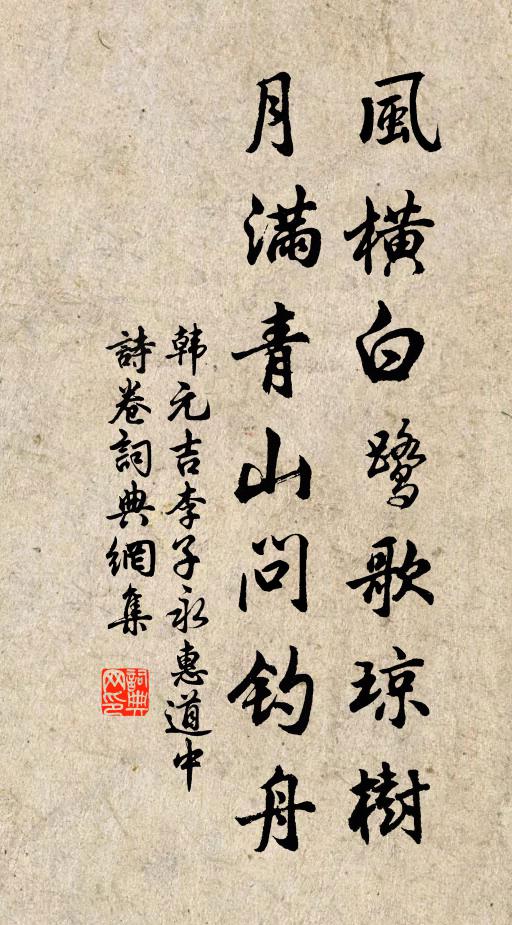 風橫白鷺歌琼樹
月滿青山问钓舟
韩元吉李子永惠道中
詩卷詞典網集
詞典网印